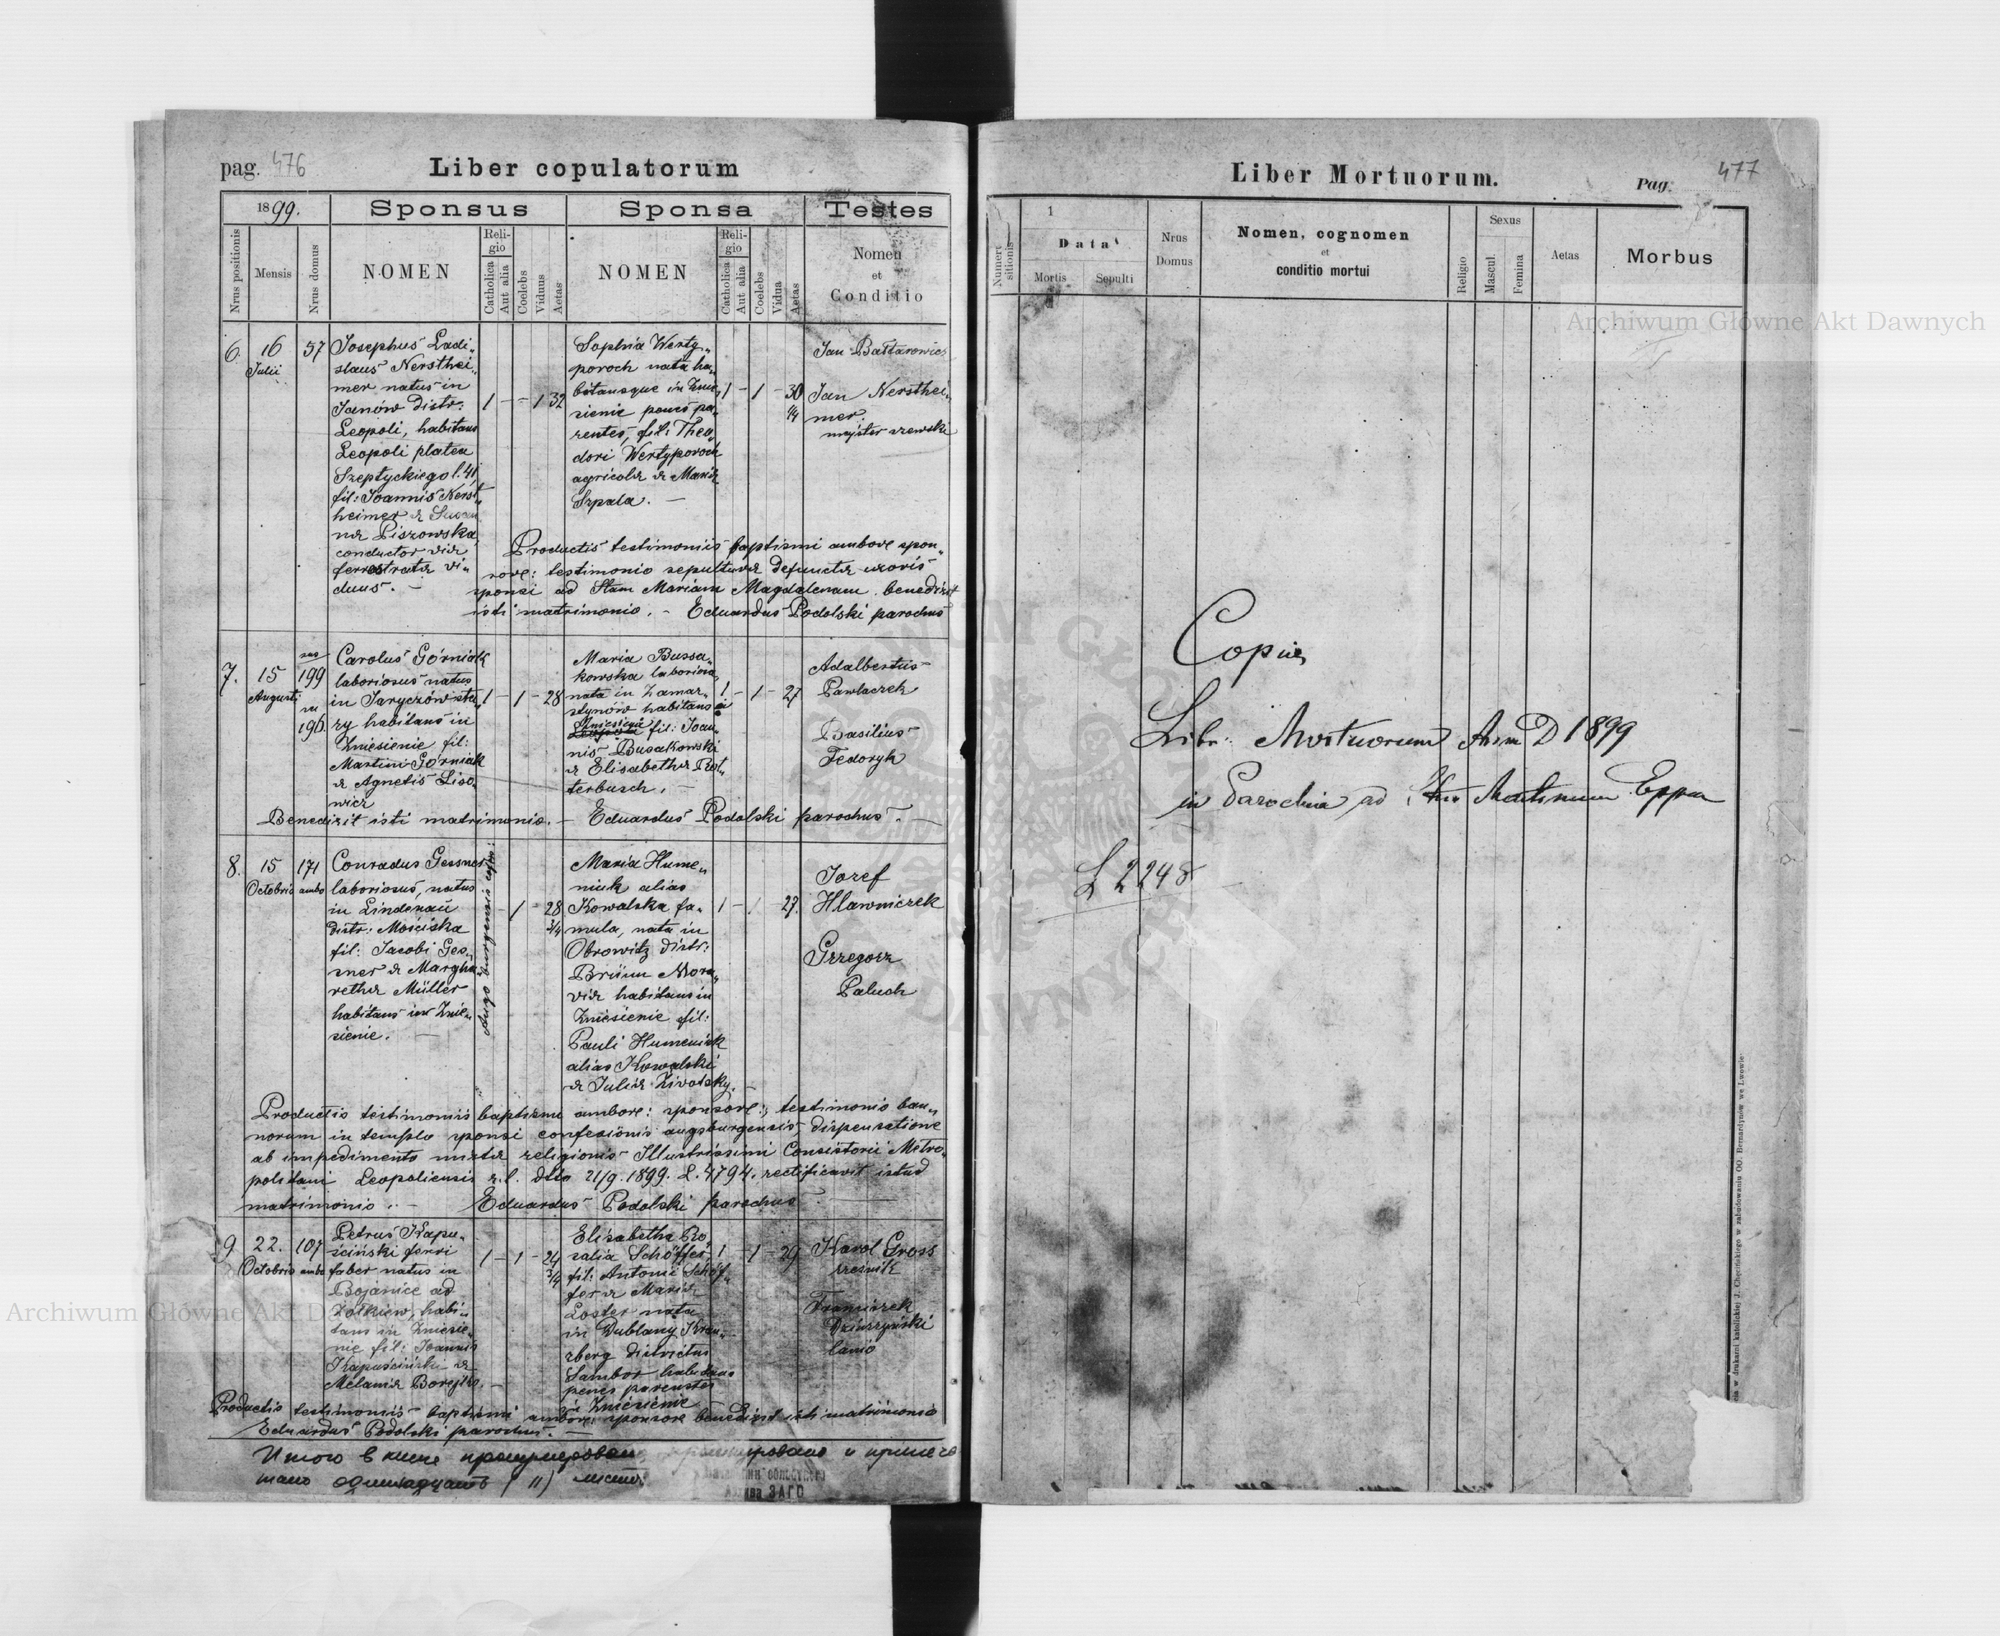 pag. 476
Liber copulatorum
1899.
Sponsus
Sponsa
Testes
Nrus positionis
Mensis
Nrus domus
NOMEN
Religio
Catholica
Aut alia
Coelebs
Viduus
Aetas
NOMEN
Religio
Catholica
Aut alia
Coelebs
Vidua
Aetas
Nomen
et
Conditio
6. 16 Julii 57
Josephus Ladi„
slaus Nersthei„
mer natus in
Janów Distr.
Leopoli, habitans
Leopoli platea
Szeptyckiego l. 41,
fil: Joannis Nerst„
heimer & Susan
na Piszowska,
conductor via
ferrostrata vi„
duus. —
1 — — 1 32
Sophia Werty„
poroch nata ha„
bitansque in Znie„
sienie penes pa„
rentes, fil: Theo„
dori Wertyporoch
agricola & Maria
Szpala. —
1 — 1 — 30
1/4
Jan Battarowicz
Jan Nersthei„
mer.
majster szewski
Productis testimoniis baptismi ambor spon„
sor: testimonio sepultura defuncta uxoris
sponsi ad Stam Mariam Magdalenam benedixit
isti matrimonio. — Eduardus Podolski parochus
7. 15 Augusti 199
196.
Carolus Górniak
laboriosus natus
in Jaryczów sta„
ry habitans in
Zniesienie fil:
Martini Górniak
& Agnetis Liso„
wicz
1 — 1 — 28
Maria Bussa„
kowska laboriosa
nata in Zamar„
stynów habitans
Zniesienie fil: Joan„
nis Busakowski
& Elisabetha Rot„
terbusch. —
1 — 1 — 27
Adalbertus
Pawlaczek
Basilius
Fedoryk
Benedixit isti matrimonio. — Eduardus Podolski parochus. —
8. 15 Octobris 171 ambo
Conradus Gessner
laboriosus, natus
in Lindenau
distr: Mościska
fil: Jacobi Ges„
sner & Margha„
retha Müller
habitans in Znie„
sienie. —
— 1 — 28
3/4
Maria Hume„
niuk alias
Kowalska fa„
mula, nata in
Obrowitz distr:
Brünn Mora„
via habitans in
Zniesienie fil:
Pauli Humeniuk
alias Kowalski
& Julia Zivotsky. —
1 — 1 — 27.
Jozef
Hlawniczek
Grzegorz
Paluch
Productis testimoniis baptismi ambor: sponsor:, testimonio ban„
norum in templo sponsi confesionis augsburgensis, dispensatione
ab impedimento mixta religionis Illustrissimi Consistorii Metro„
politani Leopoliensis r. l. dtto 21/9. 1899. L. 4794. rectificavit istud
matrimonio. — Eduardus Podolski parochus
9 22. Octobris 107 ambo
Petrus Kapu„
ściński ferri
faber natus in
Bojanice ad
Żółkiew, habi„
tans in Zniesie„
nie fil: Joannis
Kapuściński &
Melania Borejko. —
1 — 1 — 24
3/4
Elisabetha Ro„
salia Schöffer
fil: Antonii Schöf„
fer & Maria
Loster nata
in Dublany Kran„
zberg districtus
Sambor habitans
penes parentes
in Zniesienie
1 — 1 — 29
Karol Gross
rzeznik
Franciszek
lanio
Productis testimoniis baptismi ambor: sponsor benedixit isti matrimonio
Eduardus Podolski parochus. —
Итого в книге пронумеровано, прошнуровано и припеча
тано одиннадцать (11) листов
Liber Mortuorum.
Pag. 477
Numeri sitionis
1
Data
Mortis
Sepulti
Nrus
Domus
Nomen, cognomen
et
conditio mortui
Religio
Sexus
Mascul.
Femina
Aetas
Morbus
Copia
Libr: Mortuorum A D 1899
in Parochia ad Martinum Eppm
L 2248
Archiwum Główne Akt Dawnych
Archiwum Główne Akt Dawnych